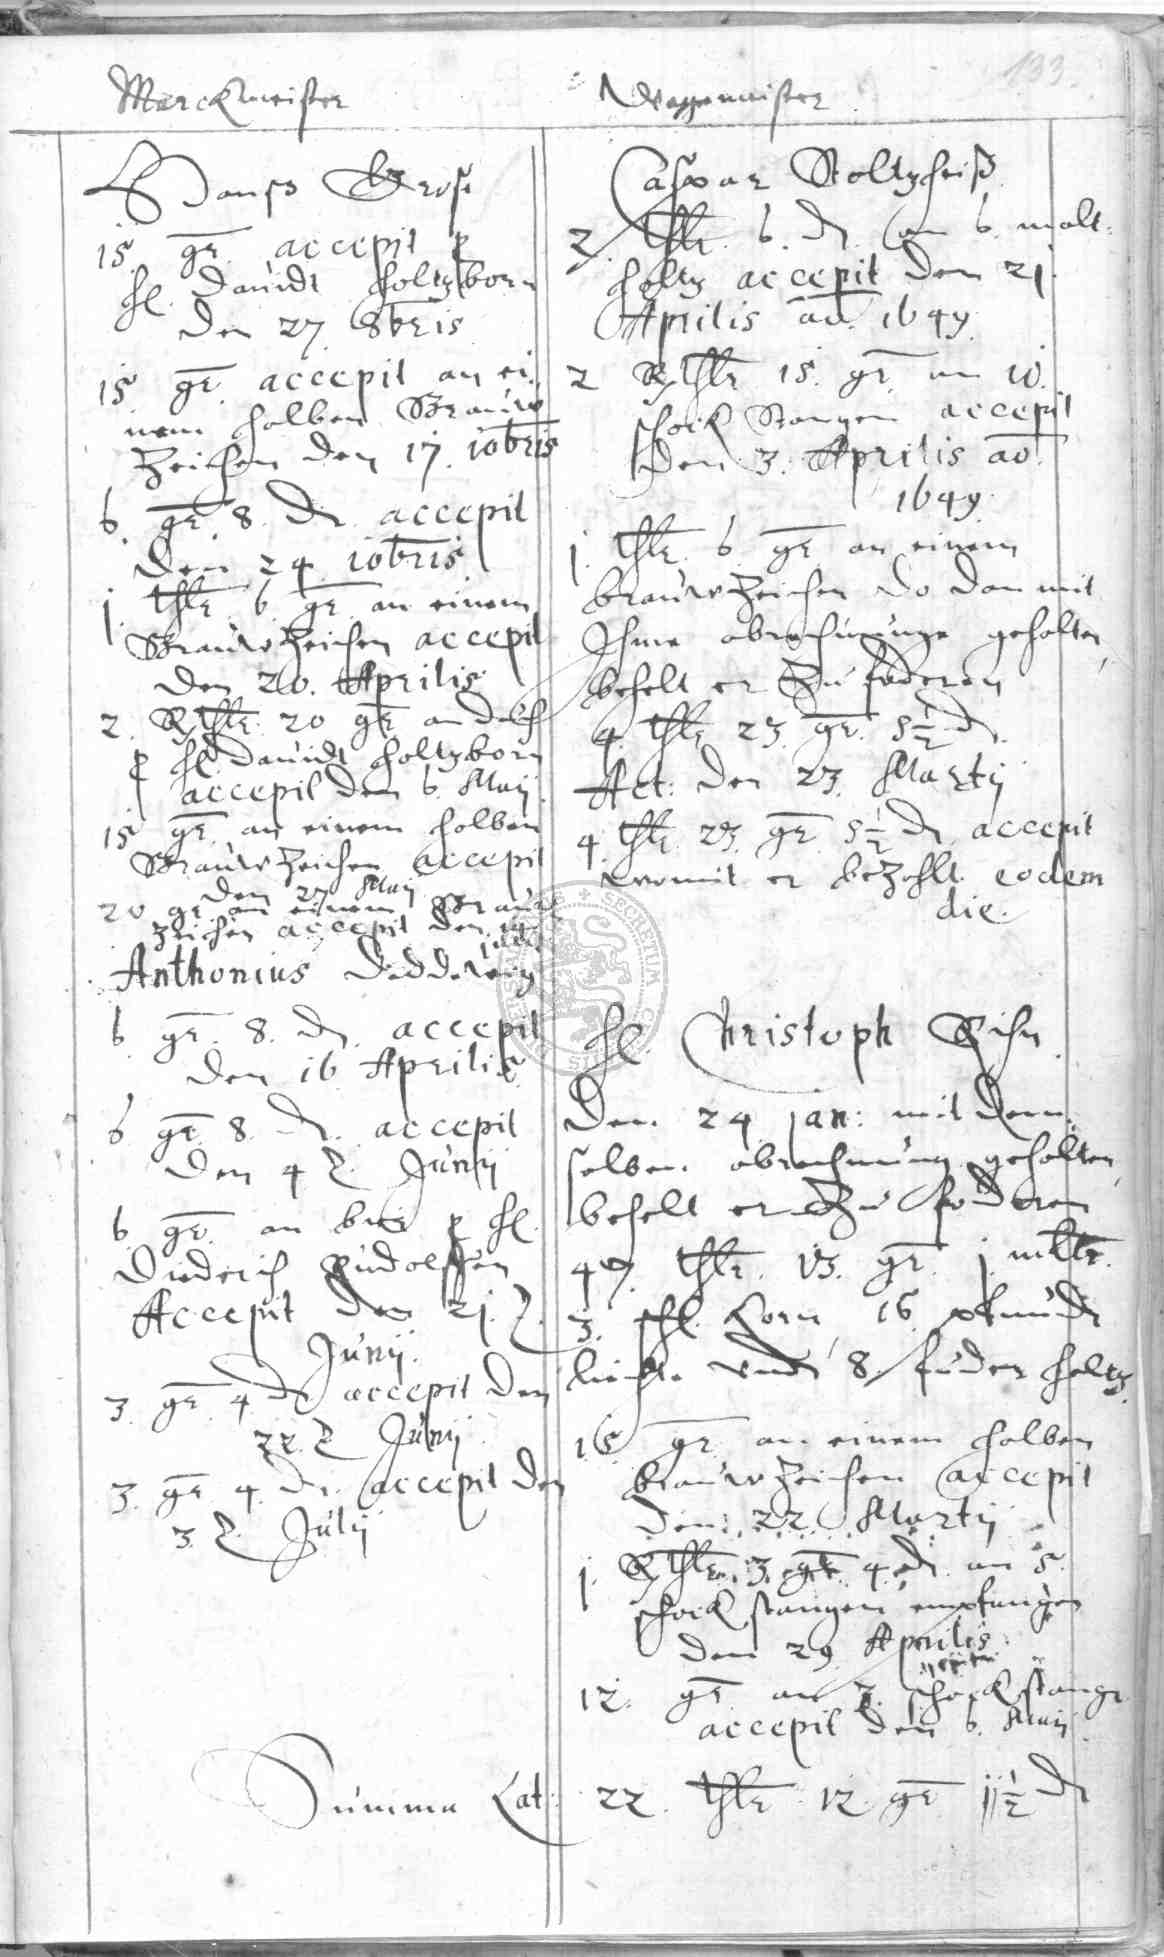 133
Marckmeister
Hanß Grose
15. gr. accepit p
hl. Dauidt holtzborn
den 27. 8bris
15 gr. accepit an ei-
nem halben Brauw
Zeichen den 17. 10bris
6. gr. 8. d. accepit
den 24 10bris
j. thlr. 6 gr an einem
Brauwzeichen accepit
den 20. Aprilis
2. Rthlr. 20 gr an
p hl. Dauidt holtzborn
accepit den 6. Maij
15 gr. an einem halben
Brauwzeichen accepit
den 27 Maij
20 gr an einem Brauw
zeichen accepit den
Anthonius
6 gr. 8. d. accepit
den 16 Aprilis
6 gr. 8. d. accepit
den 4 Junij
6 gr. an p hl.
Diederich Rudolffen
Accepit den 21.
Junij.
3. gr. 4 d accepit den
22. Junij
3. gr. 4. d. accepit den
3. Julij
Wagemeister
Caspar Stoltzheiß
2. thlr. 6. d. an 6. malt.
holtz accepit den 21
Aprilis ao. 1649.
2 Rthlr 15. gr. an 10.
schock Stangen accepit
den 3. Aprilis ao.
1649.
j. thlr. 6 gr an einem
brauwzeichen do dan mit
Ihme abrechnunge gehalten,
behelt er zu foderen
4. thlr 23. gr. 5½ d.
Act: den 23. Martij
4. thlr. 23. gr 5½ d accepit
womit er bezahlt eodem
die.
hl. Christoph
Den 24 jan: mit dem
selben abrechnung gehalten,
behelt er zu foderen
47. thlr. 13. gr. j mltr.
3. schl. Korn, 16 pfundt
lichte vndt 8. fuder holtz
15 gr. an einem halben
brauwzeichen accepit
den 22 Martij
j. Rthlr. 3. gr. 4. d. an 5.
schock stangen empfangen
den 29 Aprilis
12. gr an 2. schock stange
accepit den 6. Maij
Summa Lat: 22. thlr 12 gr jj½ d